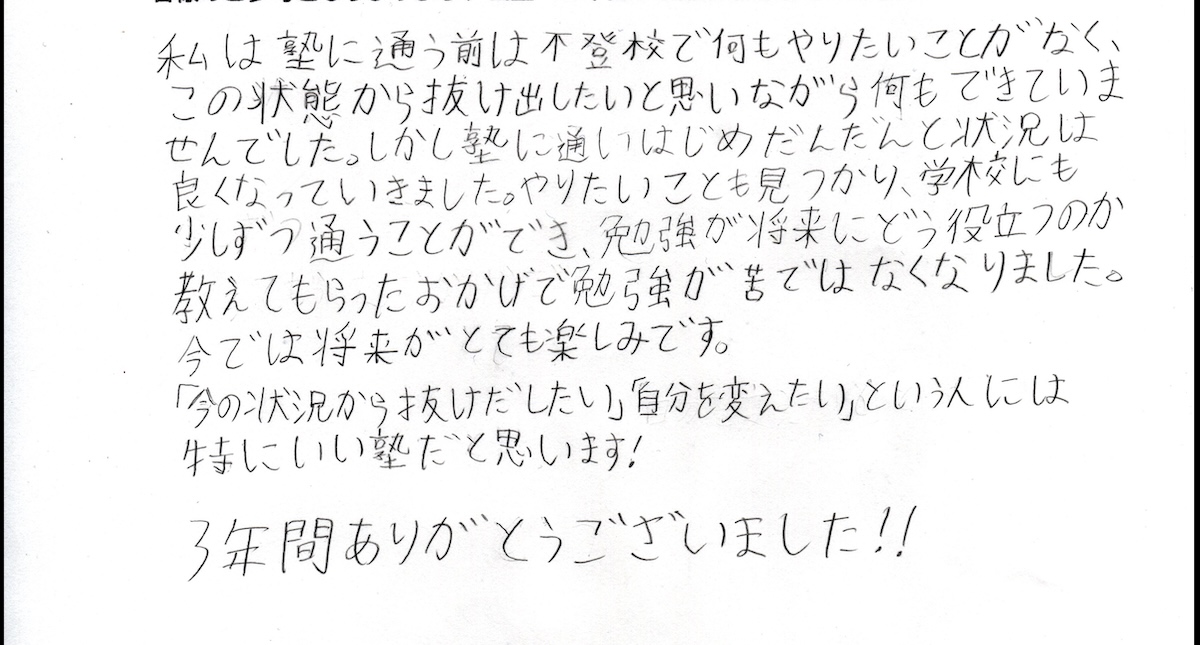 私は塾に通う前は不登校で何もやりたいことがなく、
この状態から抜け出したいと思いながら何もできていま
せんでした。しかし塾に通いはじめだんだんと状況は
良くなっていきました。やりたいことも見つかり、学校にも
少しずつ通うことができ、勉強が将来にどう役立つのか
教えてもらったおかげで勉強が苦ではなくなりました。
今では将来がとても楽しみです。
「今の状況から抜けだしたい」「自分を変えたい」という人には
特にいい塾だと思います!
3年間ありがとうございました!!